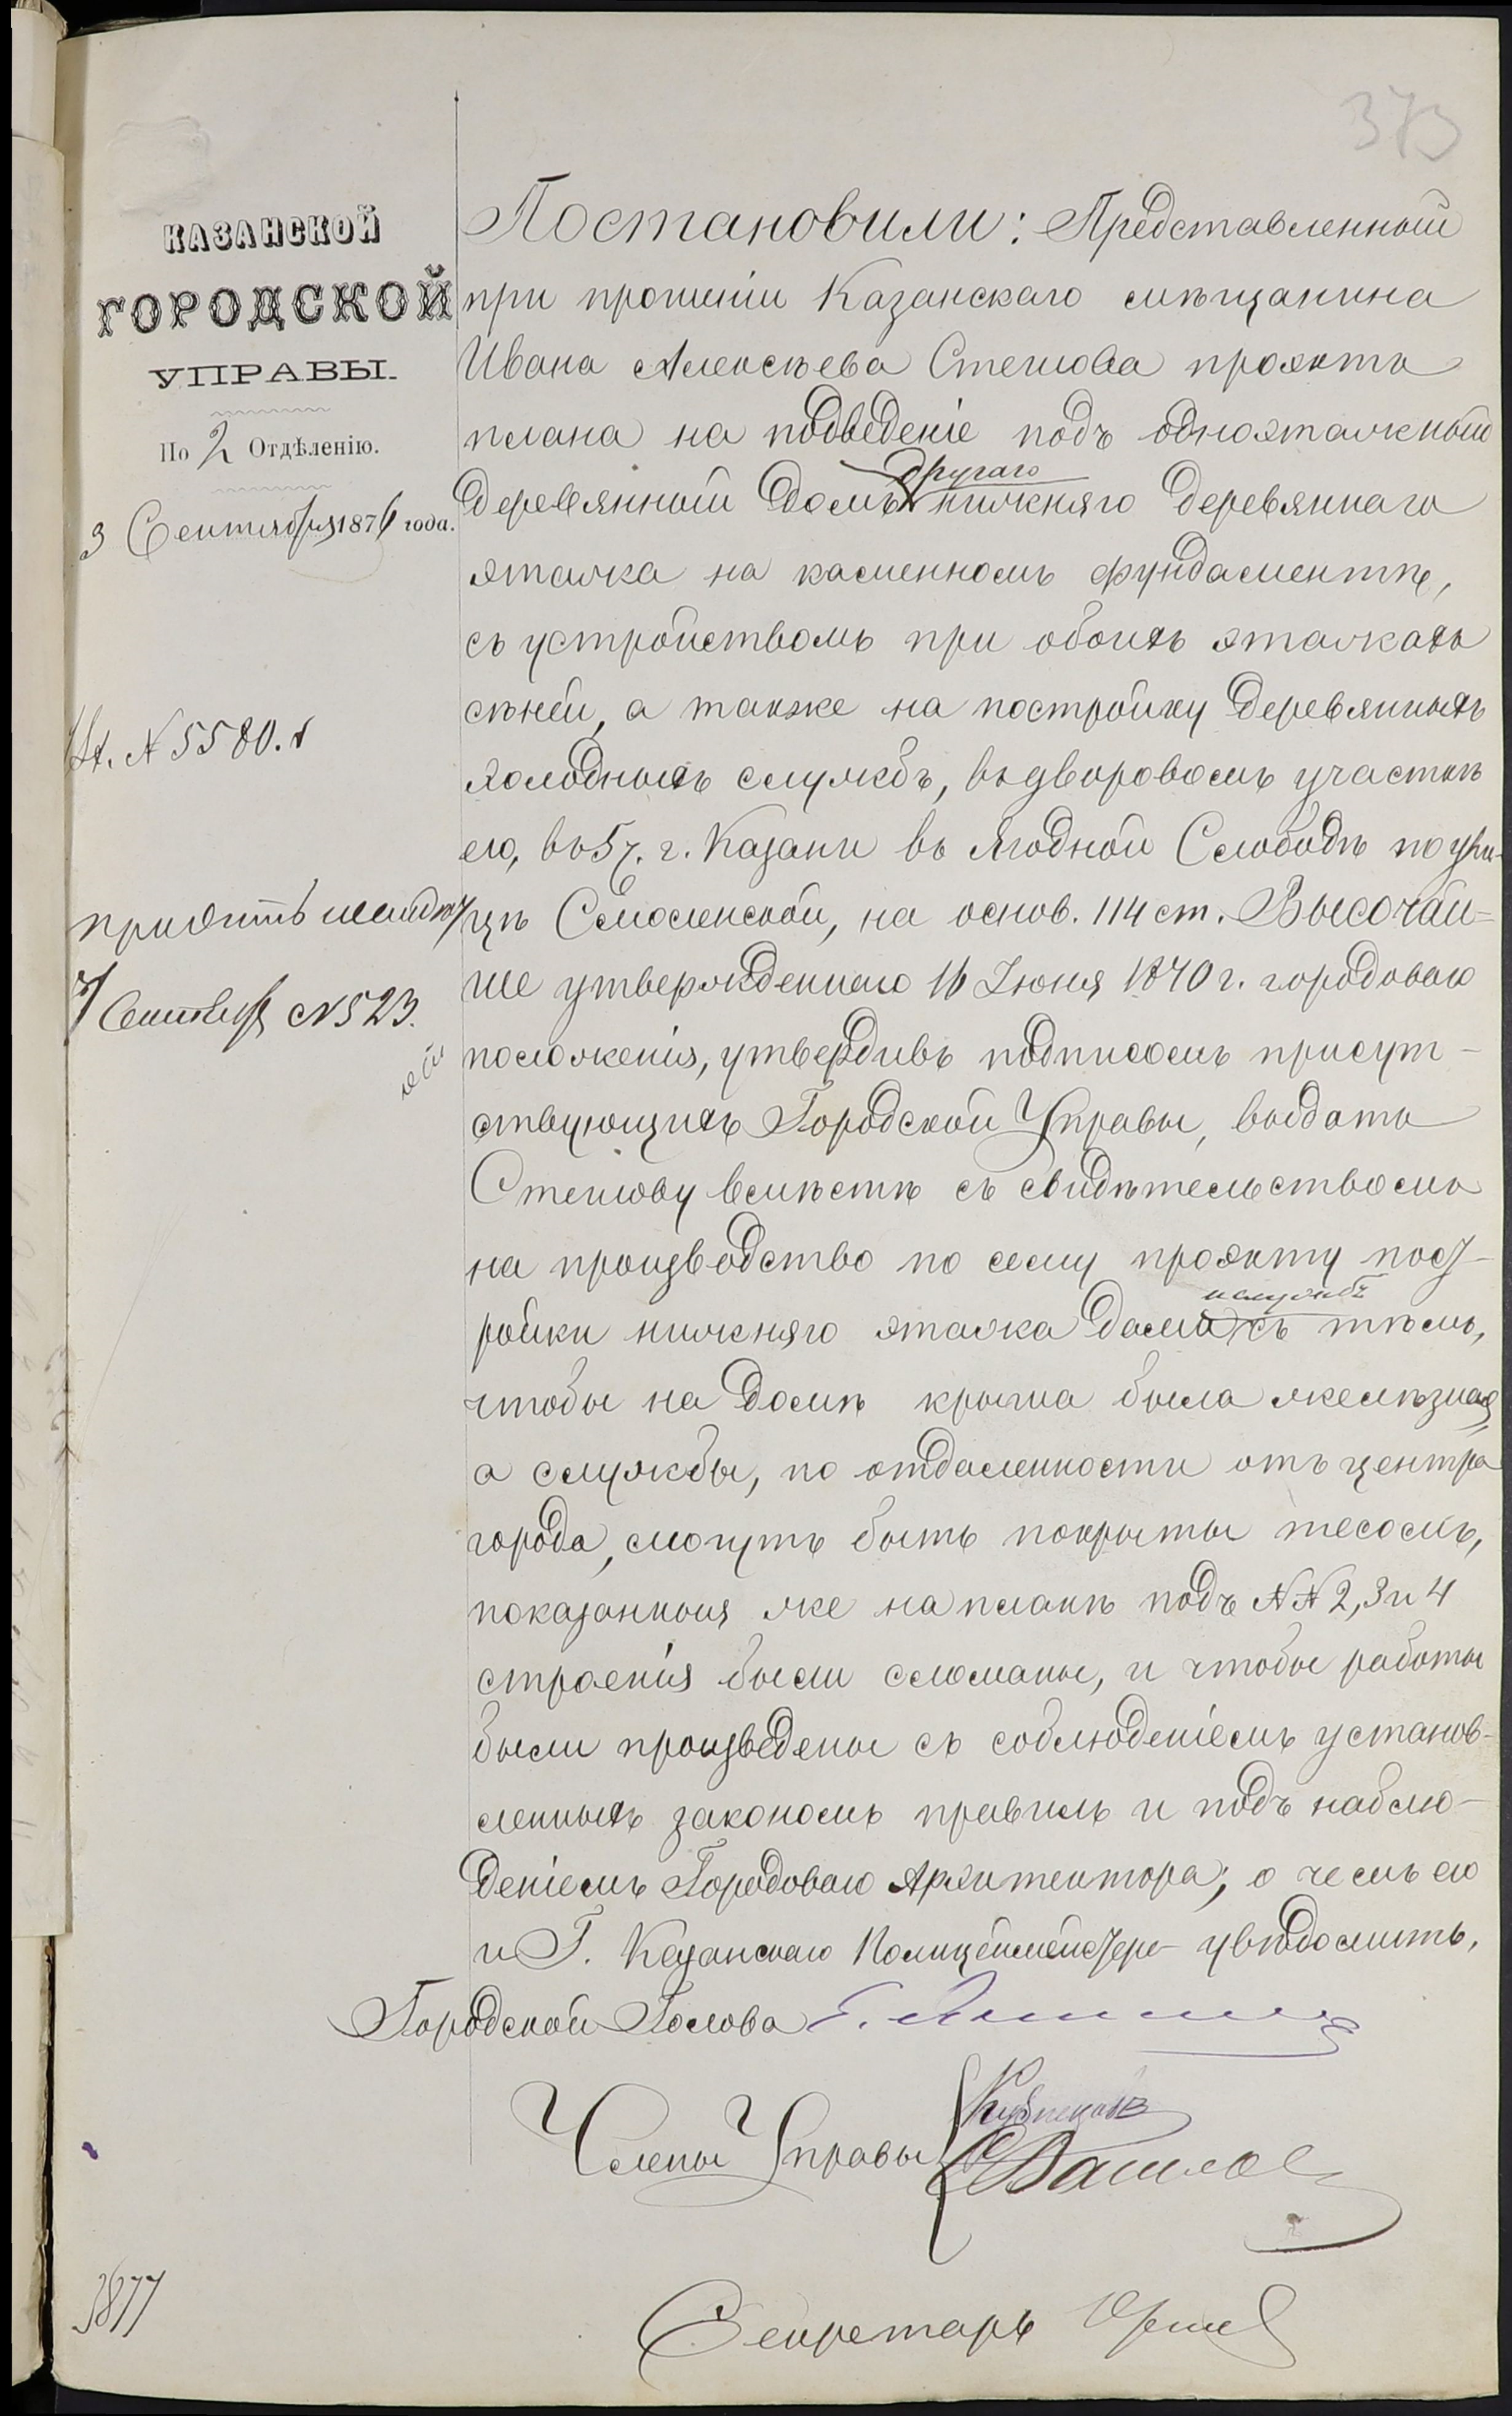 373
КАЗАНСКОЙ
ГОРОДСКОЙ
УПРАВЫ.
По 2 Отдѣленію.
3 Сентября 1876 года.
Вх. № 5580.
7 Сентября № 523.
Постановили: Представленный
при прошеніи Казанскаго мѣщанина
Ивана Алексѣева проэктъ
плана на подведеніе подъ одноэтажный
деревянный домъ другаго нижняго деревяннаго
этажа на каменномъ фундаментѣ,
съ устройствомъ при обоихъ этажахъ
сѣней, а также на постройку деревянныхъ
холодныхъ службъ, въ дворовомъ участкѣ
его, въ 5 ч. г. Казани въ Ягодной Слободѣ по ули-
цѣ Смоленской, на основ. 114 ст. Высочай=
ше утвержденнаго 16 Іюня 1870 г. городоваго
положенія, утвердивъ подписомъ присут-
ствующихъ Городской Управы, выдать
вмѣстѣ съ свидѣтельствомъ
на производство по сему проэкту пост-
ройки нижняго этажа дома и службъ съ тѣмъ,
чтобы на домѣ крыша была желѣзная,
а службы, по отдаленности отъ центра
города, могутъ быть покрыты тесомъ,
показанныя же на планѣ подъ №№ 2, 3 и 4
строенія были сломаны, и чтобы работы
были произведены съ соблюденіемъ установ-
ленныхъ закономъ правилъ и подъ наблю-
деніемъ Городоваго Архитектора; о чемъ его
и Г. Казанскаго Полицеймейстера увѣдомить.
Городской Голова
Члены Управы
Секретарь
3877